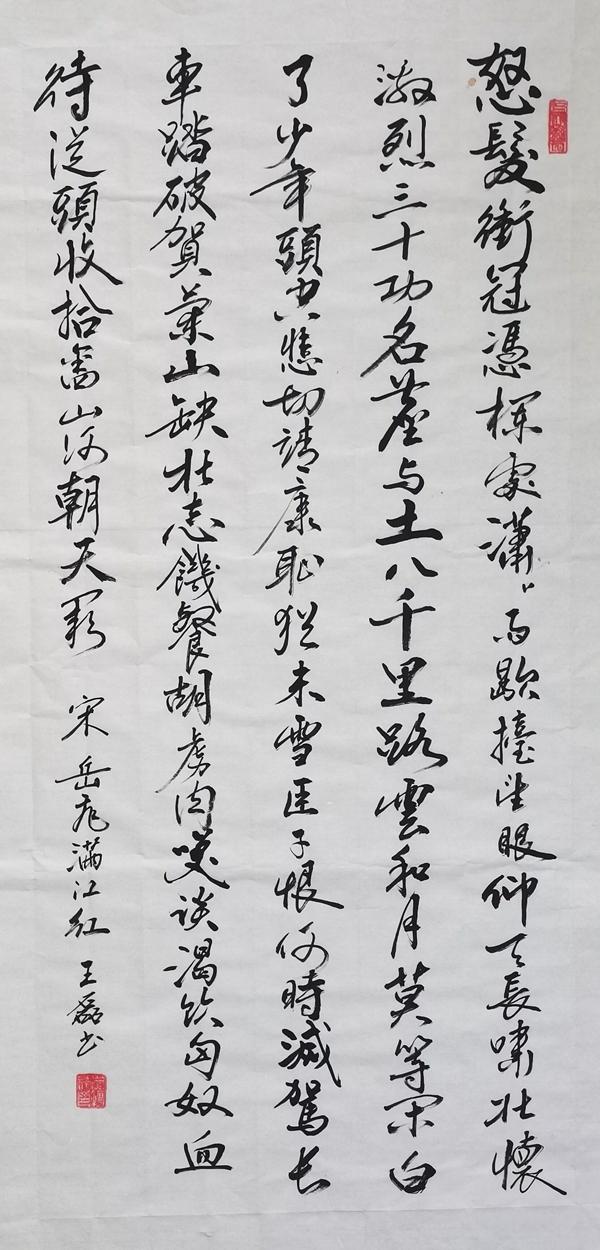 怒髮衝冠憑欄處瀟〻雨歇擡望眼仰天長嘯壯懷
激烈三十功名塵與土八千里路雲和月莫等閑白
了少年頭空悲切靖康恥猶未雪臣子恨何時滅駕长
車踏破賀蘭山缺壯志饑餐胡虜肉笑談渴飲匈奴血
待從頭收拾舊山河朝天闕
宋岳飛滿江紅
王磊书